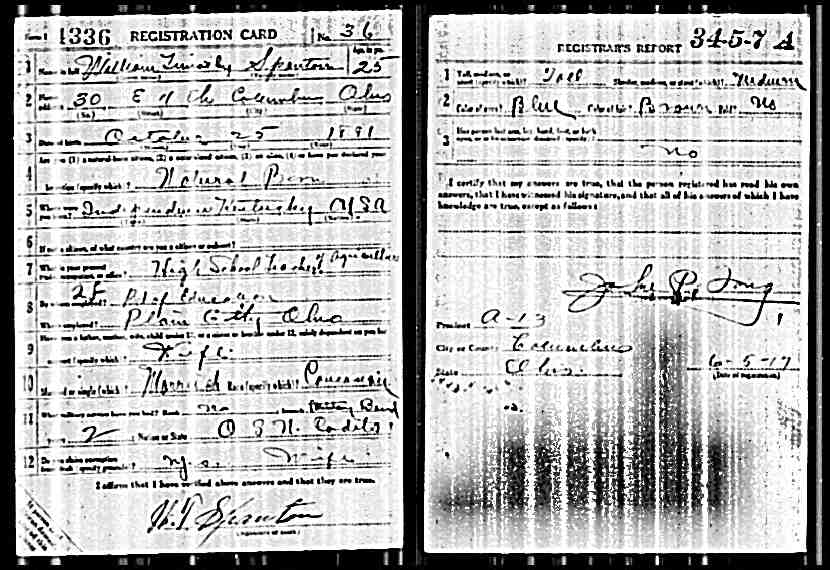 Form 1 1336 REGISTRATION CARD No. 36
1 Name in full William Timothy Spanton Age in yrs. 25
2 Home address 30 E 11 th Columbus Ohio
(No.) (Street) (City) (State)
3 Date of birth October 25 1891
(Month) (Day) (Year)
Are you (1) a natural-born citizen, (2) a naturalized citizen, (3) an alien, (4) or have you declared your
4 intention (specify which)? Natural Born
5 Where were you born? Independence Kentucky USA
6 If not a citizen, of what country are you a citizen or subject?
7 What is your present trade, occupation, or office? High School teacher of Agriculture
8 By whom employed? Bd of Education
Where employed? Plain City Ohio
Have you a father, mother, wife, child under 12, or a sister or brother under 12, solely dependent on you for
9 support (specify which)? Wife
10 Married or single (which)? Married Race (specify which)? Caucasian
11 What military service have you had? Rank no branch Military Band
years 2 Nation or State O S U Cadets
12 Do you claim exemption from draft (specify grounds)? Yes. Wife
I affirm that I have verified above answers and that they are true.
W.T. Spanton
(Signature or mark)
REGISTRAR'S REPORT 34-5-7 A
1 Tall, medium, or short (specify which)? Tall Slender, medium, or stout (which)? Medium
2 Color of eyes? Blue Color of hair? Brown Bald? No
3 Has person lost arm, leg, hand, foot, or both
eyes, or is he otherwise disabled (specify)?
no
I certify that my answers are true, that the person registered has read his own
answers, that I have witnessed his signature, and that all of his answers of which I have
knowledge are true, except as follows:
Precinct A-13
City or County Columbus
State Ohio. 6-5-17
(Date of registration)